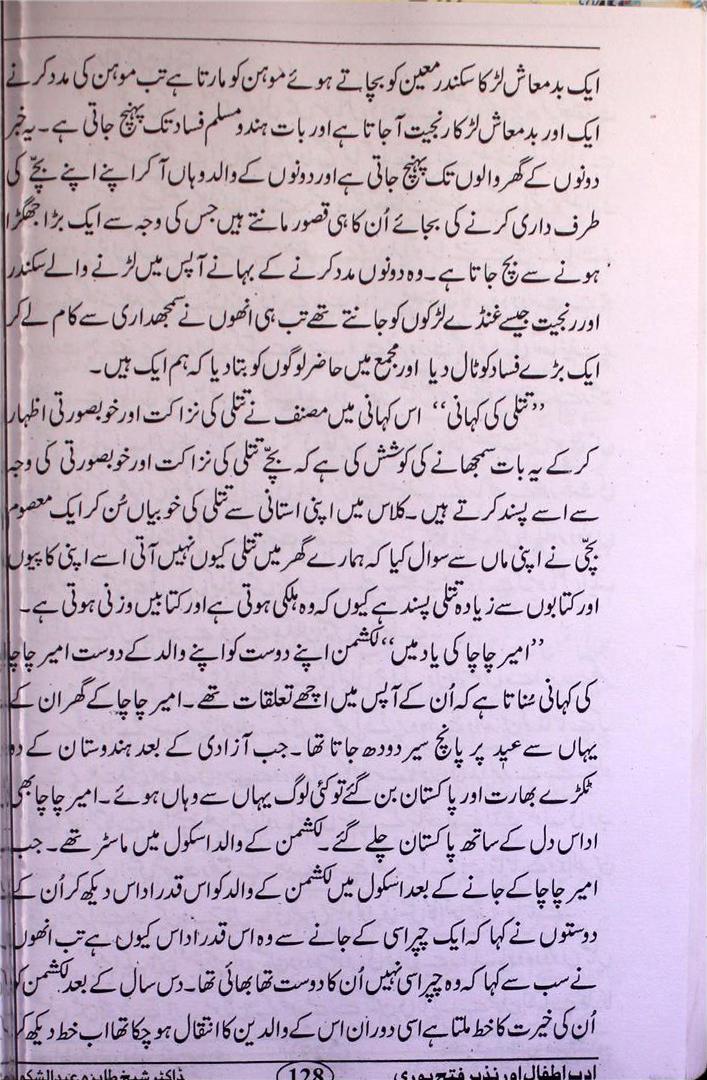 ایک بدمعاش لڑکا سکندر معین کو بچاتے ہوئے موہن کو مارتا ہے تب موہن کی مدد کرنے
ایک اور بدمعاش لڑکا رنجیت آ جاتا ہے اور بات ہندو مسلم فساد تک پہنچ جاتی ہے۔ یہ خبر
دونوں کے گھر والوں تک پہنچ جاتی ہے اور دونوں کے والد وہاں آ کر اپنے اپنے بچے کی
طرف داری کرنے کی بجائے اُن کا ہی قصور مانتے ہیں جس کی وجہ سے ایک بڑا جھگڑا
ہونے سے بچ جاتا ہے۔ وہ دونوں مدد کرنے کے بہانے آپس میں لڑنے والے سکندر
اور رنجیت جیسے غنڈے لڑکوں کو جانتے تھے تب ہی انھوں نے سمجھداری سے کام لے کر
ایک بڑے فساد کو ٹال دیا اور مجمع میں حاضر لوگوں کو بتا دیا کہ ہم ایک ہیں۔
”تتلی کی کہانی“ اس کہانی میں مصنف نے تتلی کی نزاکت اور خوبصورتی اظہار
کر کے یہ بات سمجھانے کی کوشش کی ہے کہ بچّے تتلی کی نزاکت اور خوبصورتی کی وجہ
سے اسے پسند کرتے ہیں۔ کلاس میں اپنی استانی سے تتلی کی خوبیاں سُن کر ایک معصوم
بچّی نے اپنی ماں سے سوال کیا کہ ہمارے گھر میں تتلی کیوں نہیں آتی اسے اپنی کاپیوں
اور کتابوں سے زیادہ تتلی پسند ہے کیوں کہ وہ ہلکی ہوتی ہے اور کتابیں وزنی ہوتی ہے۔
”امیر چاچا کی یاد میں“ لکشمن اپنے دوست کو اپنے والد کے دوست امیر چاچا
کی کہانی سُناتا ہے کہ اُن کے آپس میں اچھے تعلقات تھے۔ امیر چاچا کے گھر ان کے
یہاں سے عید پر پانچ سیر دودھ جاتا تھا۔ جب آزادی کے بعد ہندوستان کے دو
ٹکڑے بھارت اور پاکستان بن گئے تو کئی لوگ یہاں سے وہاں ہوئے۔ امیر چاچا بھی
اداس دل کے ساتھ پاکستان چلے گئے۔ لکشمن کے والد اسکول میں ماسٹر تھے۔ جب
امیر چاچا کے جانے کے بعد اسکول میں لکشمن کے والد کو اس قدر اداس دیکھ کر اُن کے
دوستوں نے کہا کہ ایک چپراسی کے جانے سے وہ اس قدر اداس کیوں ہے تب انھوں
نے سب سے کہا کہ وہ چپراسی نہیں اُن کا دوست تھا بھائی تھا۔ دس سال کے بعد لکشمن کو
اُن کی خیرت کا خط ملتا ہے اسی دوران اس کے والدین کا انتقال ہو چکا تھا اب خط دیکھ کر
ادب اطفال اور نذیر فتح پوری 128 ڈاکٹر شیخ طاہرہ عبدالشکور